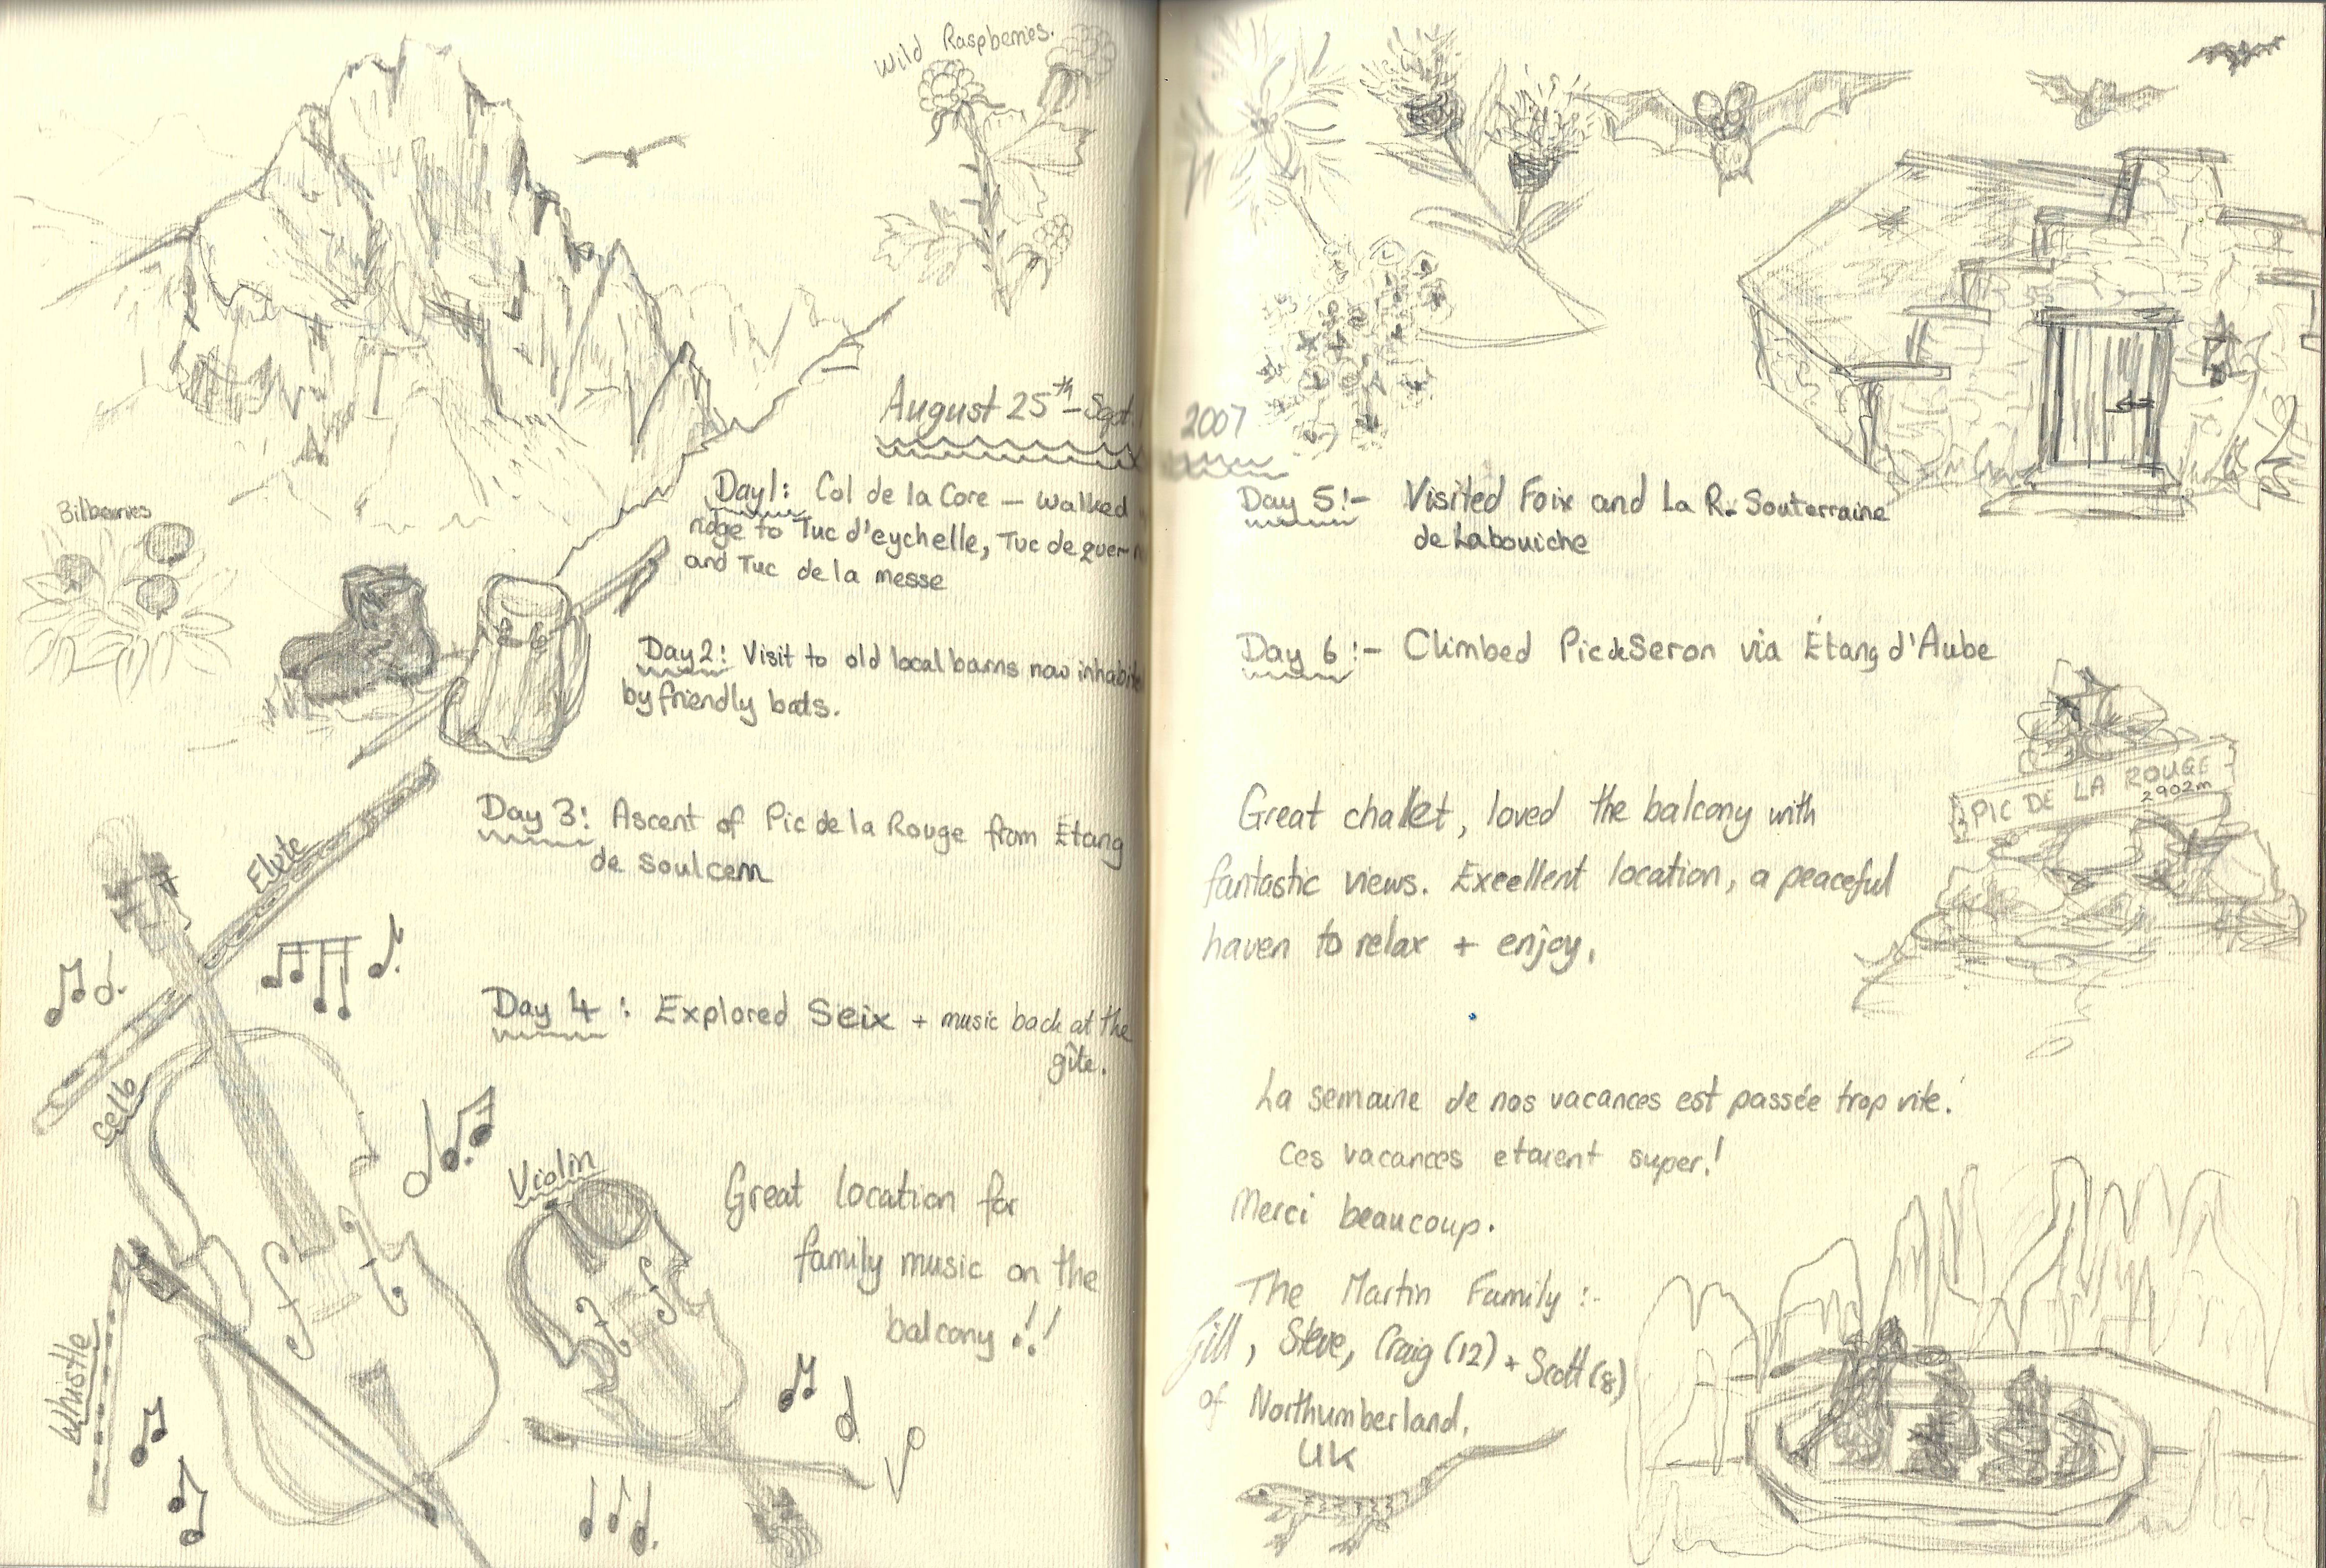 Wild Raspberries.
August 25th - Sept.
Day 1: Col de la Core — Walked
ridge to Tuc d'eychelle, Tuc de quer-
and Tuc de la messe
Bilberries
Day 2: Visit to old local barns now inhabite
by friendly bats.
Day 3: Ascent of Pic de la Rouge from Étang
de Soulcem
Flute
Day 4: Explored Seix + music back at the
gîte.
Cello
Violin
Great location for
family music on the
balcony!!
Whistle
2007
Day 5:- Visited Foix and La R. Souterraine
de Labouiche
Day 6:- Climbed Pic de Seron via Étang d'Aube
PIC DE LA ROUGE
2902m
Great challet, loved the balcony with
fantastic views. Excellent location, a peaceful
haven to relax + enjoy.
La semaine de nos vacances est passée trop vite.
Ces vacances etaient super!
Merci beaucoup.
The Martin Family:-
Gill, Steve, Craig (12) + Scott (8)
of Northumberland.
UK